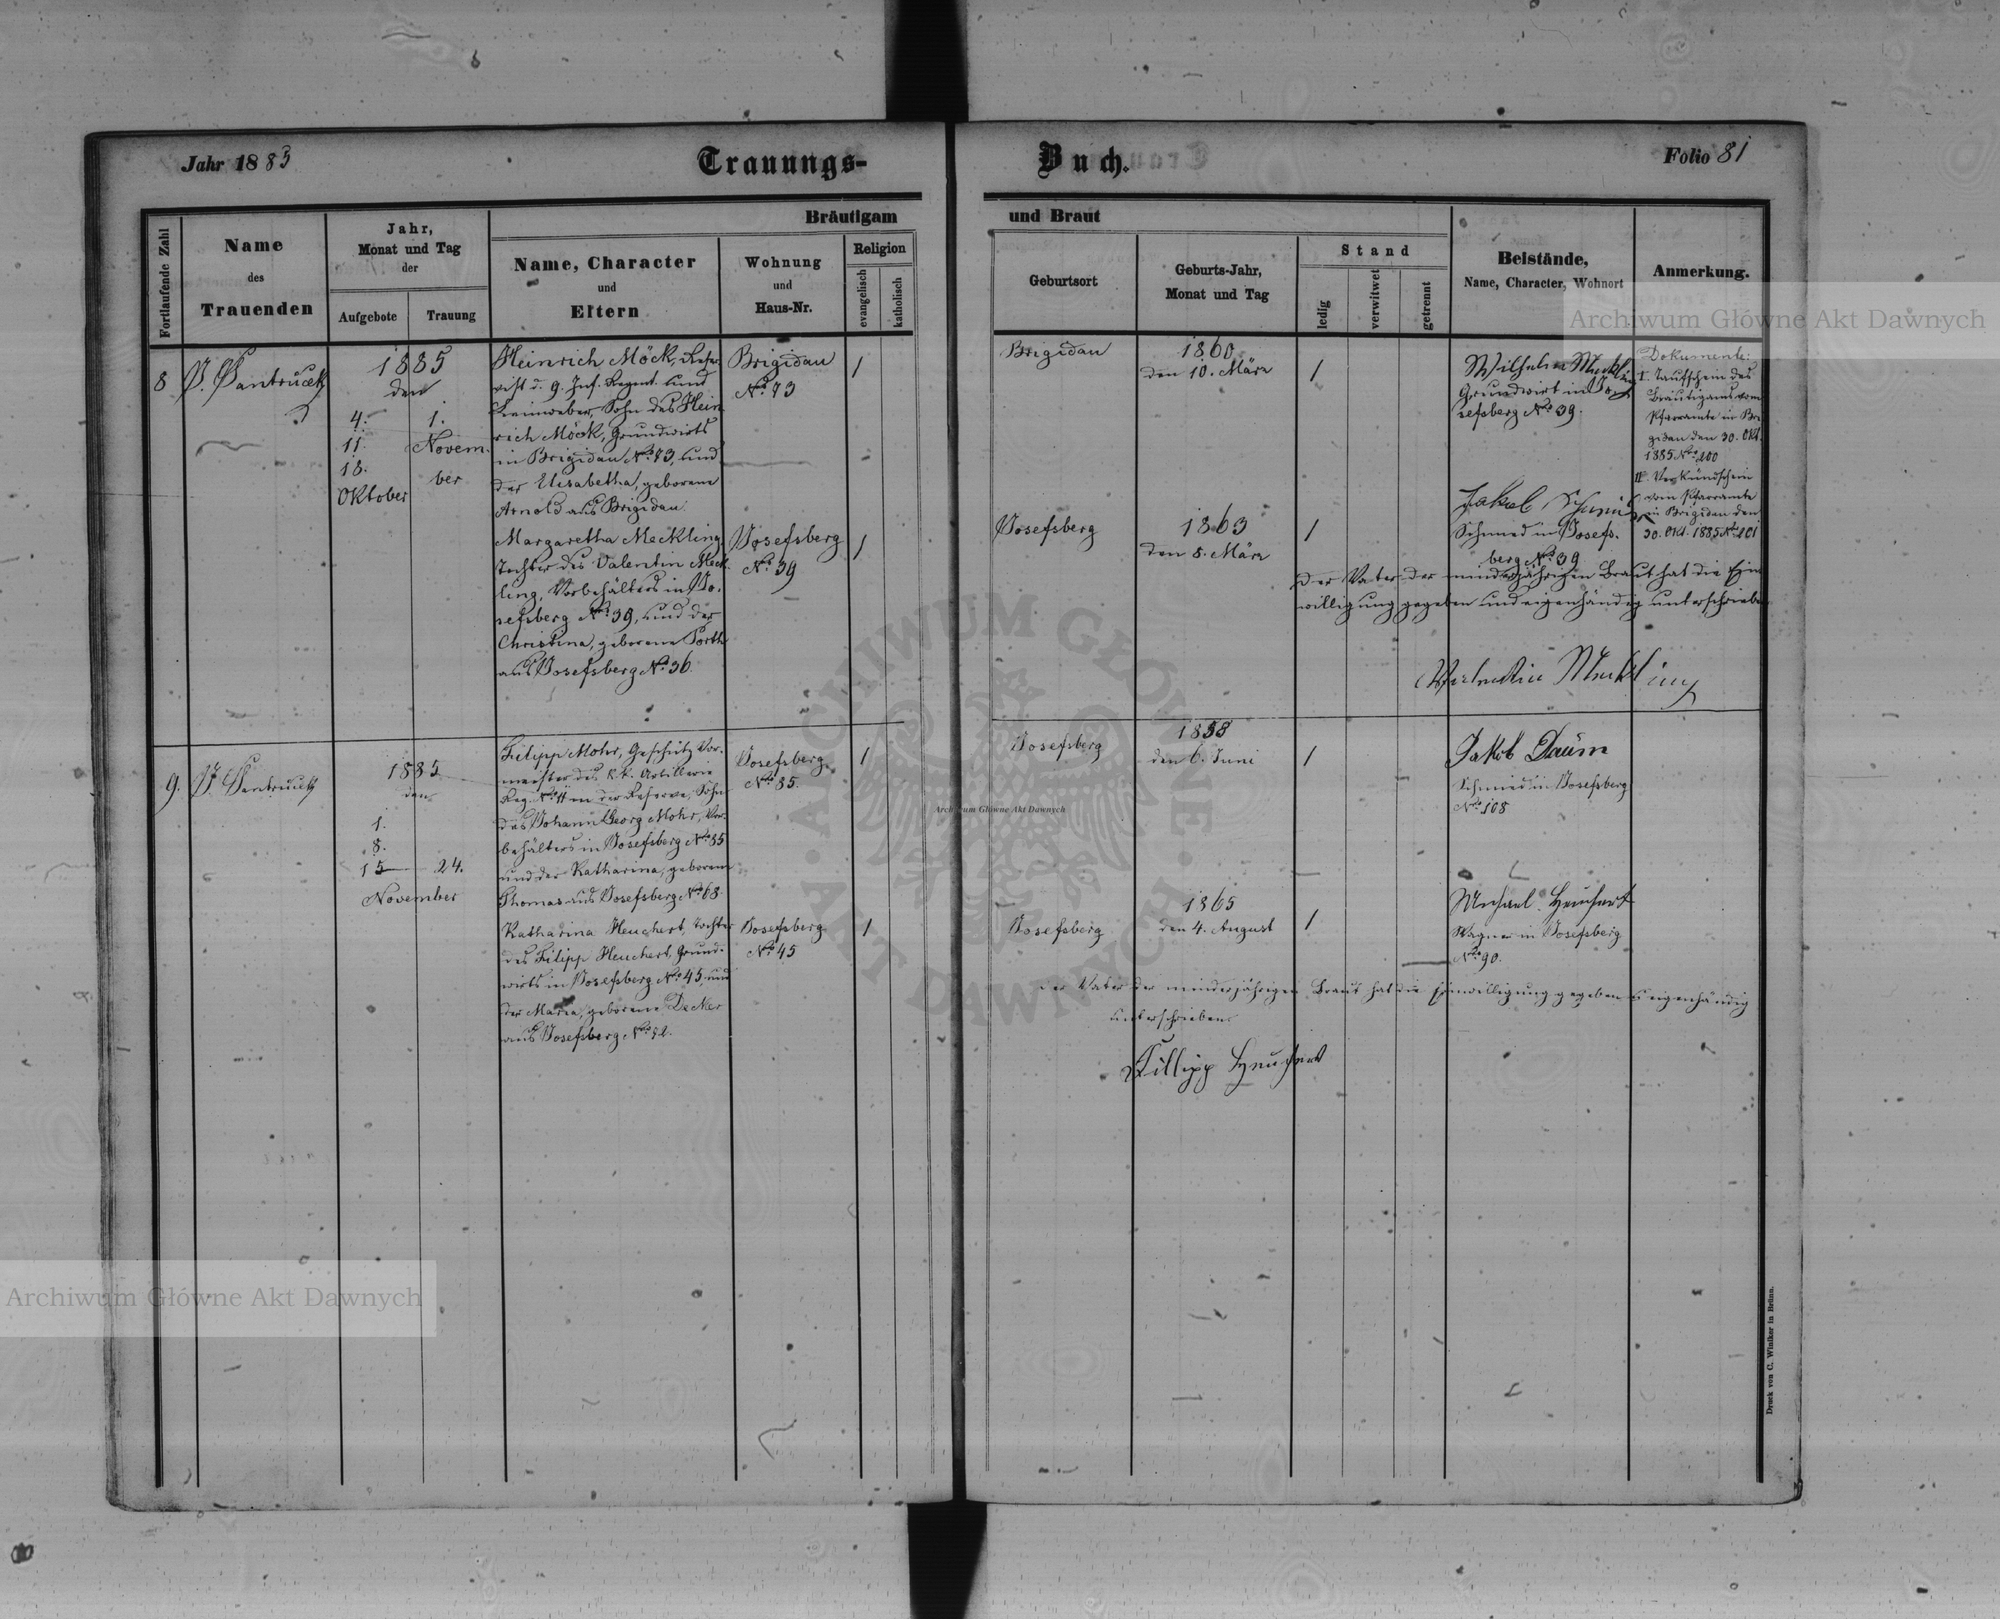 Jahr 1885
Trauungs-
Buch.
Folio 81
Fortlaufende Zahl
Name
des
Trauenden
Jahr,
Monat und Tag
der
Aufgebote
Trauung
Bräutigam
und Braut
Name, Character
und
Eltern
Wohnung
und
Haus-Nr.
Religion
evangelisch
katholisch
Geburtsort
Geburts-Jahr,
Monat und Tag
Stand
ledig
verwitwet
getrennt
Beistände,
Name, Character, Wohnort
Anmerkung.
8
J. Hantruck
1885
den
4. 1.
11. Novem-
18. ber
Oktober
Heinrich Möck, Reser-
vist d. 9. Inf. Regmt. und
Leinweber, Sohn des Hein-
rich Möck, Grundwirts
in Brigidau No. 73, und
der Elisabetha, geborene
Arnold aus Brigidau.
Brigidau
No. 73
/
Brigidau
1860
den 10. März
/
Wilhelm Meckling
Grundwirt in Jo-
sefsberg No. 39.
Dokumente:
I. Taufschein des
Bräutigams vom
Pfarramte in Bri-
gidau den 30. Okt.
1885 No. 200
II. Verkündschein
vom Pfarramte
in Brigidau den
30. Okt. 1885 No. 201
Margaretha Meckling,
Tochter des Valentin Meck-
ling, Vorbehälters in Jo-
sefsberg No. 39, und der
Christina, geborene Porth
aus Josefsberg No. 36.
Josefsberg
No. 39
/
Josefsberg
1863
den 8. März
/
Jakob
Schmied in Josefs-
berg No. 39
Der Vater der minderjährigen Braut hat die Ein-
willigung gegeben und eigenhändig unterschrieben
Valentin Meckling
9.
J. Hantruck
1885
den
1.
8.
15 24.
November
Filipp Mohr, Geschütz Vor-
meister des k.k. Artillerie
Reg. No. 11 in der Reserve, Sohn
des Johann Georg Mohr, Vor-
behälters in Josefsberg No. 85
und der Katharina, geborene
Thomas aus Josefsberg No. 68.
Josefsberg
No. 85.
/
Josefsberg
1858
den 6. Juni
/
Jakob Daum
Schmied in Josefsberg
No. 108
Katharina Heuchert, Tochter
des Filipp Heuchert, Grund-
wirts in Josefsberg No. 45, und
der Maria, geborene Decker
aus Josefsberg No. 92.
Josefsberg
No. 45
/
Josefsberg
1865
den 4. August
/
Michael Heuchert
Wagner in Josefsberg
No. 90.
Der Vater der minderjährigen Braut hat die Einwilligung gegeben u. eigenhändig
unterschrieben.
Fillipp Heuchert
Druck von C. Winiker in Brünn.
Archiwum Główne Akt Dawnych
Archiwum Główne Akt Dawnych
Archiwum Główne Akt Dawnych
ARCHIWUM GŁÓWNE
AKT DAWNYCH